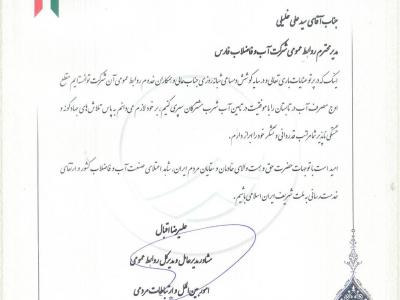 جناب آقای سید علی خلیلی
مدیر محترم روابط عمومی شرکت آب و فاضلاب فارس
اینک که در پرتو عنایات باری تعالی و در سایه کوشش و مساعی شبانه‌روزی جنابعالی و همکاران خدوم روابط عمومی آن شرکت توانستیم مقطع
اوج مصرف آب در تابستان را با موفقیت در تامین آب شرب مشترکان سپری کنیم، بر خود لازم می‌دانم به پاس تلاش‌های جهادگونه و
خستگی ناپذیر مراتب قدردانی و تشکر خود را ابراز دارم.
امید است با توجهات حضرت حق و همت والای خادمان و سقایان مردم ایران، شاهد اعتلای صنعت آب و فاضلاب کشور و ارتقای
خدمت رسانی به ملت شریف ایران اسلامی باشیم.
علیرضا اقبال
مشاور مدیرعامل و مدیرکل روابط عمومی
امور بین الملل و ارتباطات مردمی